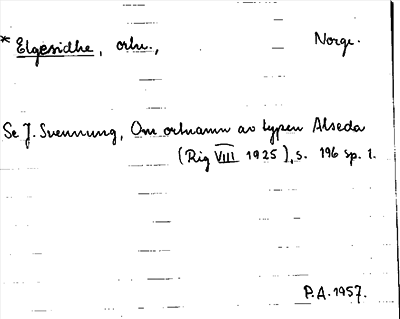 * Elgesidhe, ortn., Norge.
Se J. Svennung, Om ortnamn av typen Alseda
(Rig VIII 1925), s. 196 sp. 1.
P.A. 1957.